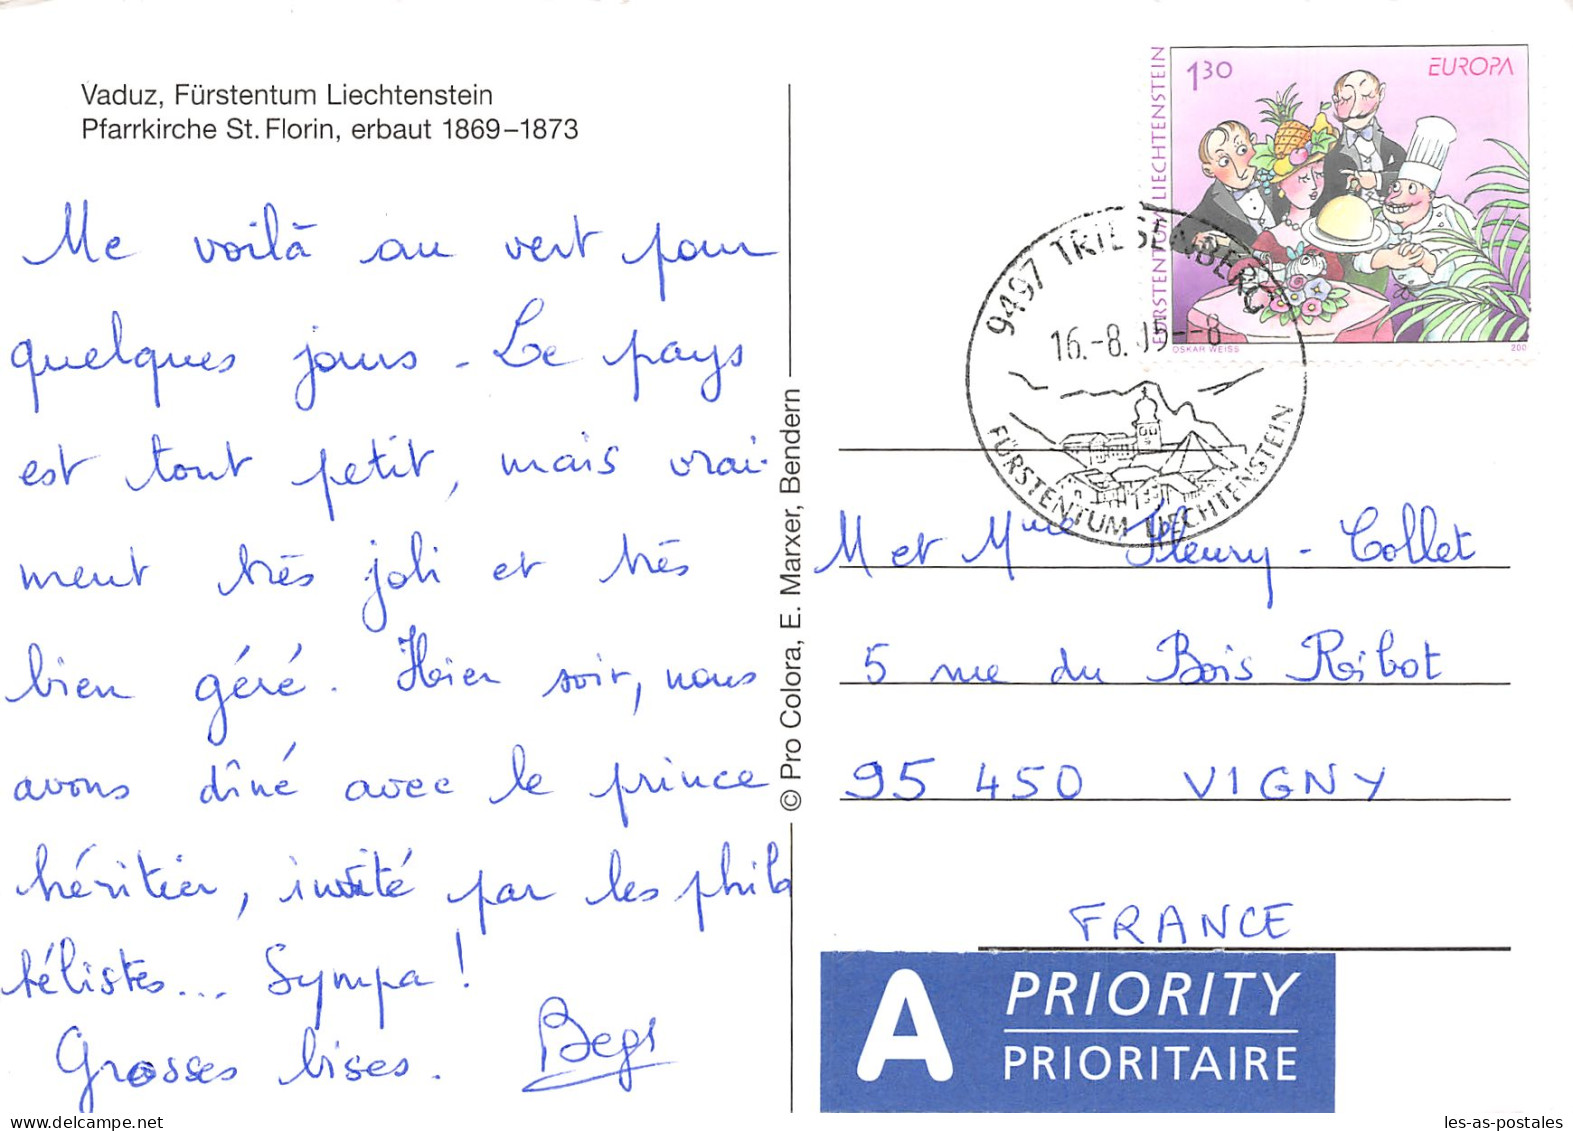 Vaduz, Fürstentum Liechtenstein
Pfarrkirche St. Florin, erbaut 1869–1873
Me voilà au vert pour
quelques jours - Le pays
est tout petit, mais vrai-
ment très joli et très
bien géré. Hier soir, nous
avons dîné avec le prince
héritier, invité par les phila
télistes... Sympa!
Grosses bises.
© Pro Colora, E. Marxer, Bendern
FÜRSTENTUM LIECHTENSTEIN
1.30
EUROPA
OSKAR WEISS
200
9497 TRIESENBERG
16.-8. 05--8
FÜRSTENTUM LIECHTENSTEIN
M et Mme Fleury - Collet
5 rue du Bois Ribot
95 450 VIGNY
FRANCE
A PRIORITY
PRIORITAIRE
les-as-postales
delcampe.net